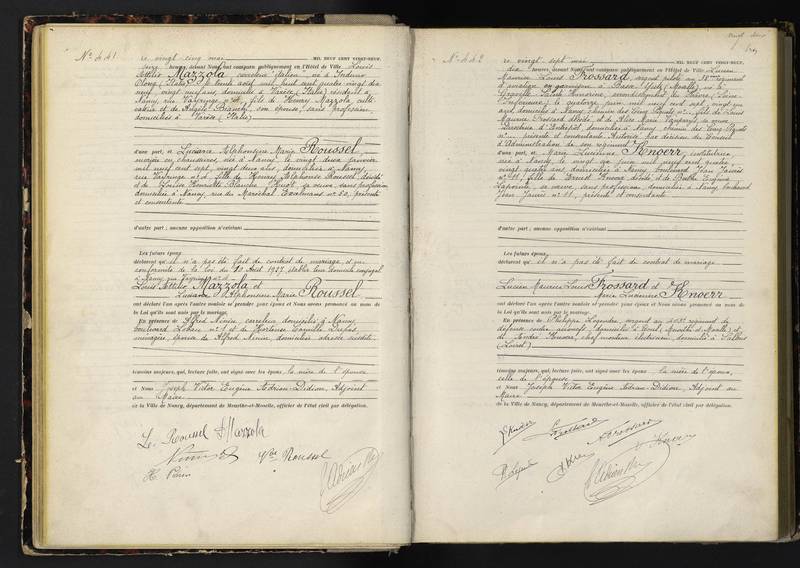 N° 441
Le vingt cinq mai MIL NEUF CENT VINGT-NEUF,
heures, devant Nous, ont comparu publiquement en l'Hôtel de Ville Louis
Attilio Mazzola, carreleur italien, né à Induno
Olona (Italie), le trente août mil huit cent quatre vingt dix
neuf, vingt neuf ans, domicilié à Varèse (Italie) résidant à
Nancy, rue Vayringe n° , fils de Henry Mazzola, culti-
vateur et de Bianchi, son épouse, sans profession,
domiciliés à Varèse (Italie)
d'une part, et Luciane Alphonsine Marie Roussel
en chaussures, née à Nancy, le vingt deux janvier
mil neuf cent sept, vingt deux ans, domiciliée à Nancy,
rue Vayringe n° , fille de Henry Alphonse Roussel, décédé
et de Louise Henriette Blanche , sa veuve, sans profession
domiciliée à Nancy, rue du Maréchal Exelmans n° 50, présente
et consentante
d'autre part ; aucune opposition n'existant
Les futurs époux
déclarent qu'il n'a pas été fait de contrat de mariage et en
conformité de la loi du 10 Août 1927, établir leur domicile conjugal
à Nancy rue Vayringe n°
Louis Attilio Mazzola et
Luciane Alphonsine Marie Roussel
ont déclaré l'un après l'autre vouloir se prendre pour époux et Nous avons prononcé au nom de
la Loi qu'ils sont unis par le mariage.
En présence de Alfred Ninin, carreleur domicilié à Nancy,
boulevard Lobau n° et de Hortense Camille ,
ménagère, épouse de Alfred Ninin, domiciliée adresse susdite,
témoins majeurs, qui, lecture faite, ont signé avec les époux, la mère de l'épouse
et Nous Joseph Victor Eugène Adrian-Didion, Adjoint
au Maire
de la Ville de Nancy, département de Meurthe-et-Moselle, officier de l'état civil par délégation.
L. Roussel Mazzola
Ninin Vve Roussel
N° 442
Le vingt sept mai MIL NEUF CENT VINGT-NEUF,
dix heures, devant Nous, ont comparu publiquement en l'Hôtel de Ville Lucien
Maurice Louis Frossard, sergent pilote au 38e régiment
d'aviation en garnison à Basse Yutz (Moselle), né à
arrondissement du Havre (Seine-
Inférieure) le quatorze juin mil neuf cent sept, vingt un
ans, domicilié à Nancy, chemin des Cinq Piquets n° , fils de Louis
Maurice Frossard, décédé, et de Alice Marie , sa veuve,
Directrice d'Entrepôt, domiciliée à Nancy, chemin des Cinq Piquets
n° , présente et consentante. Autorisé par décision du Conseil
d'Administration de son régiment
d'une part, et Marie Lucienne Knoerr, institutrice,
née à Nancy, le vingt six juin mil neuf cent quatre,
vingt quatre ans, domiciliée à Nancy, boulevard Jean Jaurès
n° 41, fille de Ernest Knoerr, décédé, et de Berthe Eugénie
Lapointe, sa veuve, sans profession, domiciliée à Nancy, boulevard
Jean Jaurès n° 41, présente et consentante
d'autre part ; aucune opposition n'existant
Les futurs époux
déclarent qu'il n'a pas été fait de contrat de mariage
Lucien Maurice Louis Frossard et
Marie Lucienne Knoerr
ont déclaré l'un après l'autre vouloir se prendre pour époux et Nous avons prononcé au nom de
la Loi qu'ils sont unis par le mariage.
En présence de Philippe , sergent au régiment de
défense contre aéronefs, domicilié à Toul, Meurthe et Moselle, et
de André , chef monteur électricien, domicilié à
(Loiret)
témoins majeurs, qui, lecture faite, ont signé avec les époux, la mère de l'époux,
celle de l'épouse
et Nous Joseph Victor Eugène Adrian-Didion, Adjoint au
Maire
de la Ville de Nancy, département de Meurthe-et-Moselle, officier de l'état civil par délégation.